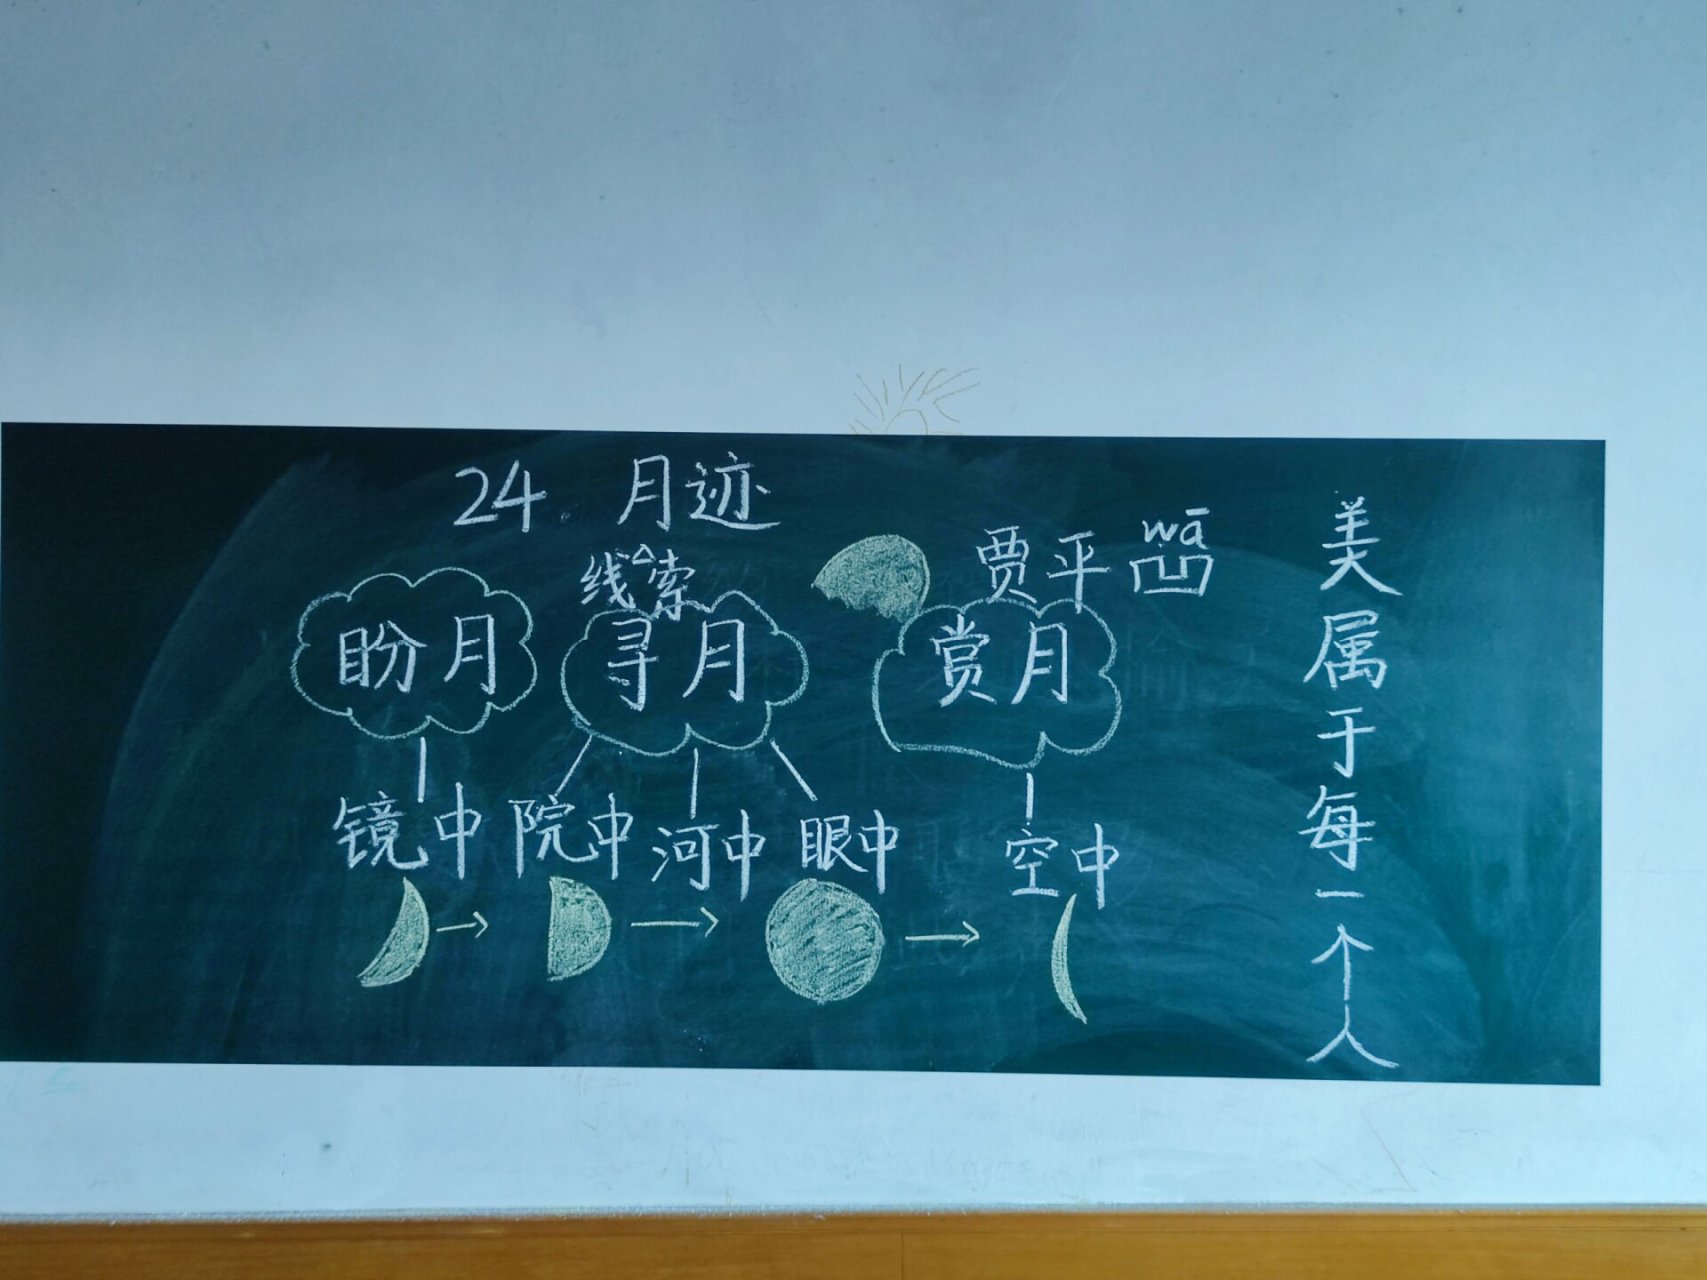 24. 月迹
贾平凹
wā
线索
盼月 寻月 赏月
镜中 院中 河中 眼中 空中
美属于每一个人